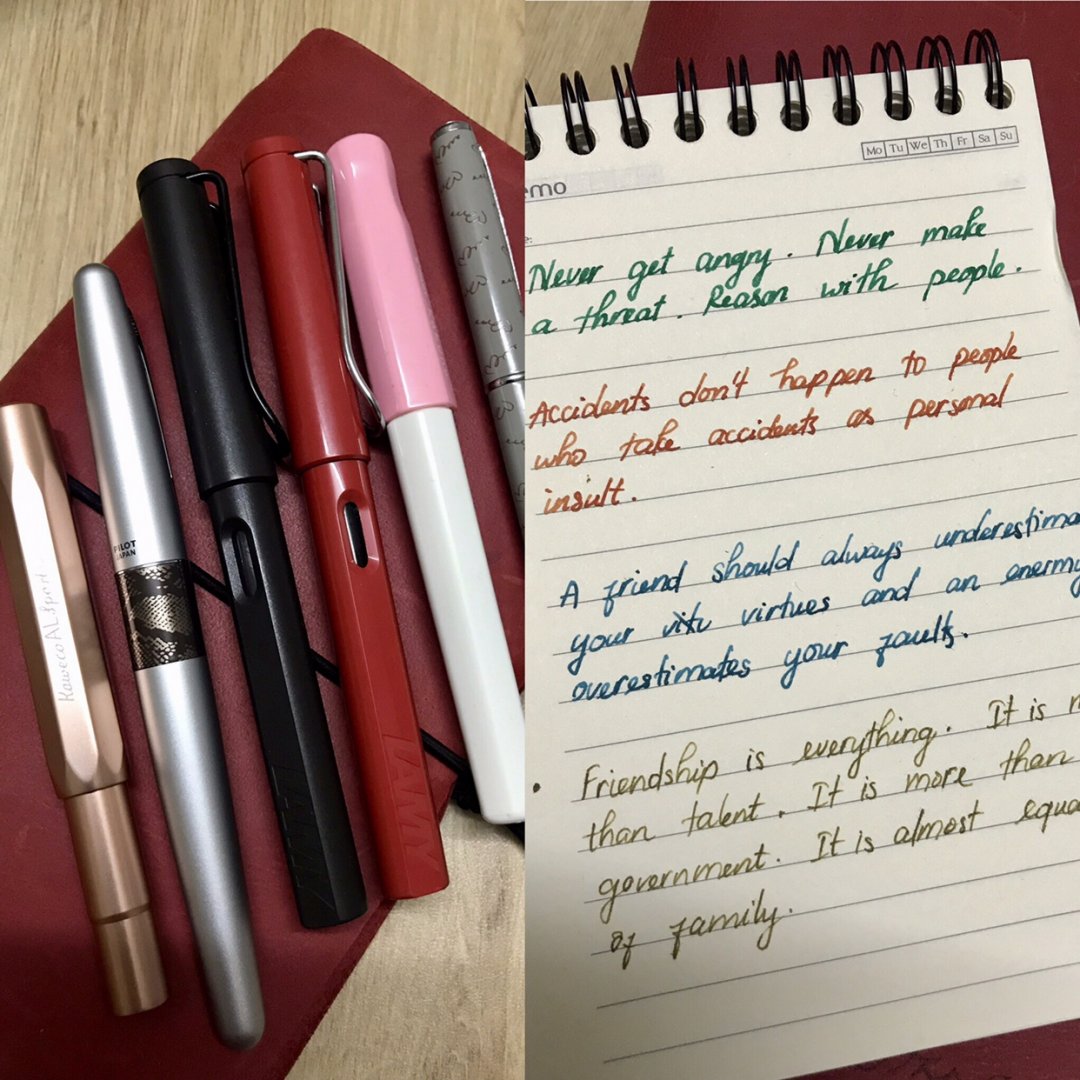 Kaweco AL Sport
PILOT
JAPAN
LAMY
LAMY
Mo Tu We Th Fr Sa Su
emo
Never get angry. Never make
a threat. Reason with people.
Accidents don't happen to people
who take accidents as personal
insult.
A friend should always underestima
your vitu virtues and an enermy
overestimates your faults.
Friendship is everything. It is m
than talent. It is more than
government. It is almost equa
of family.